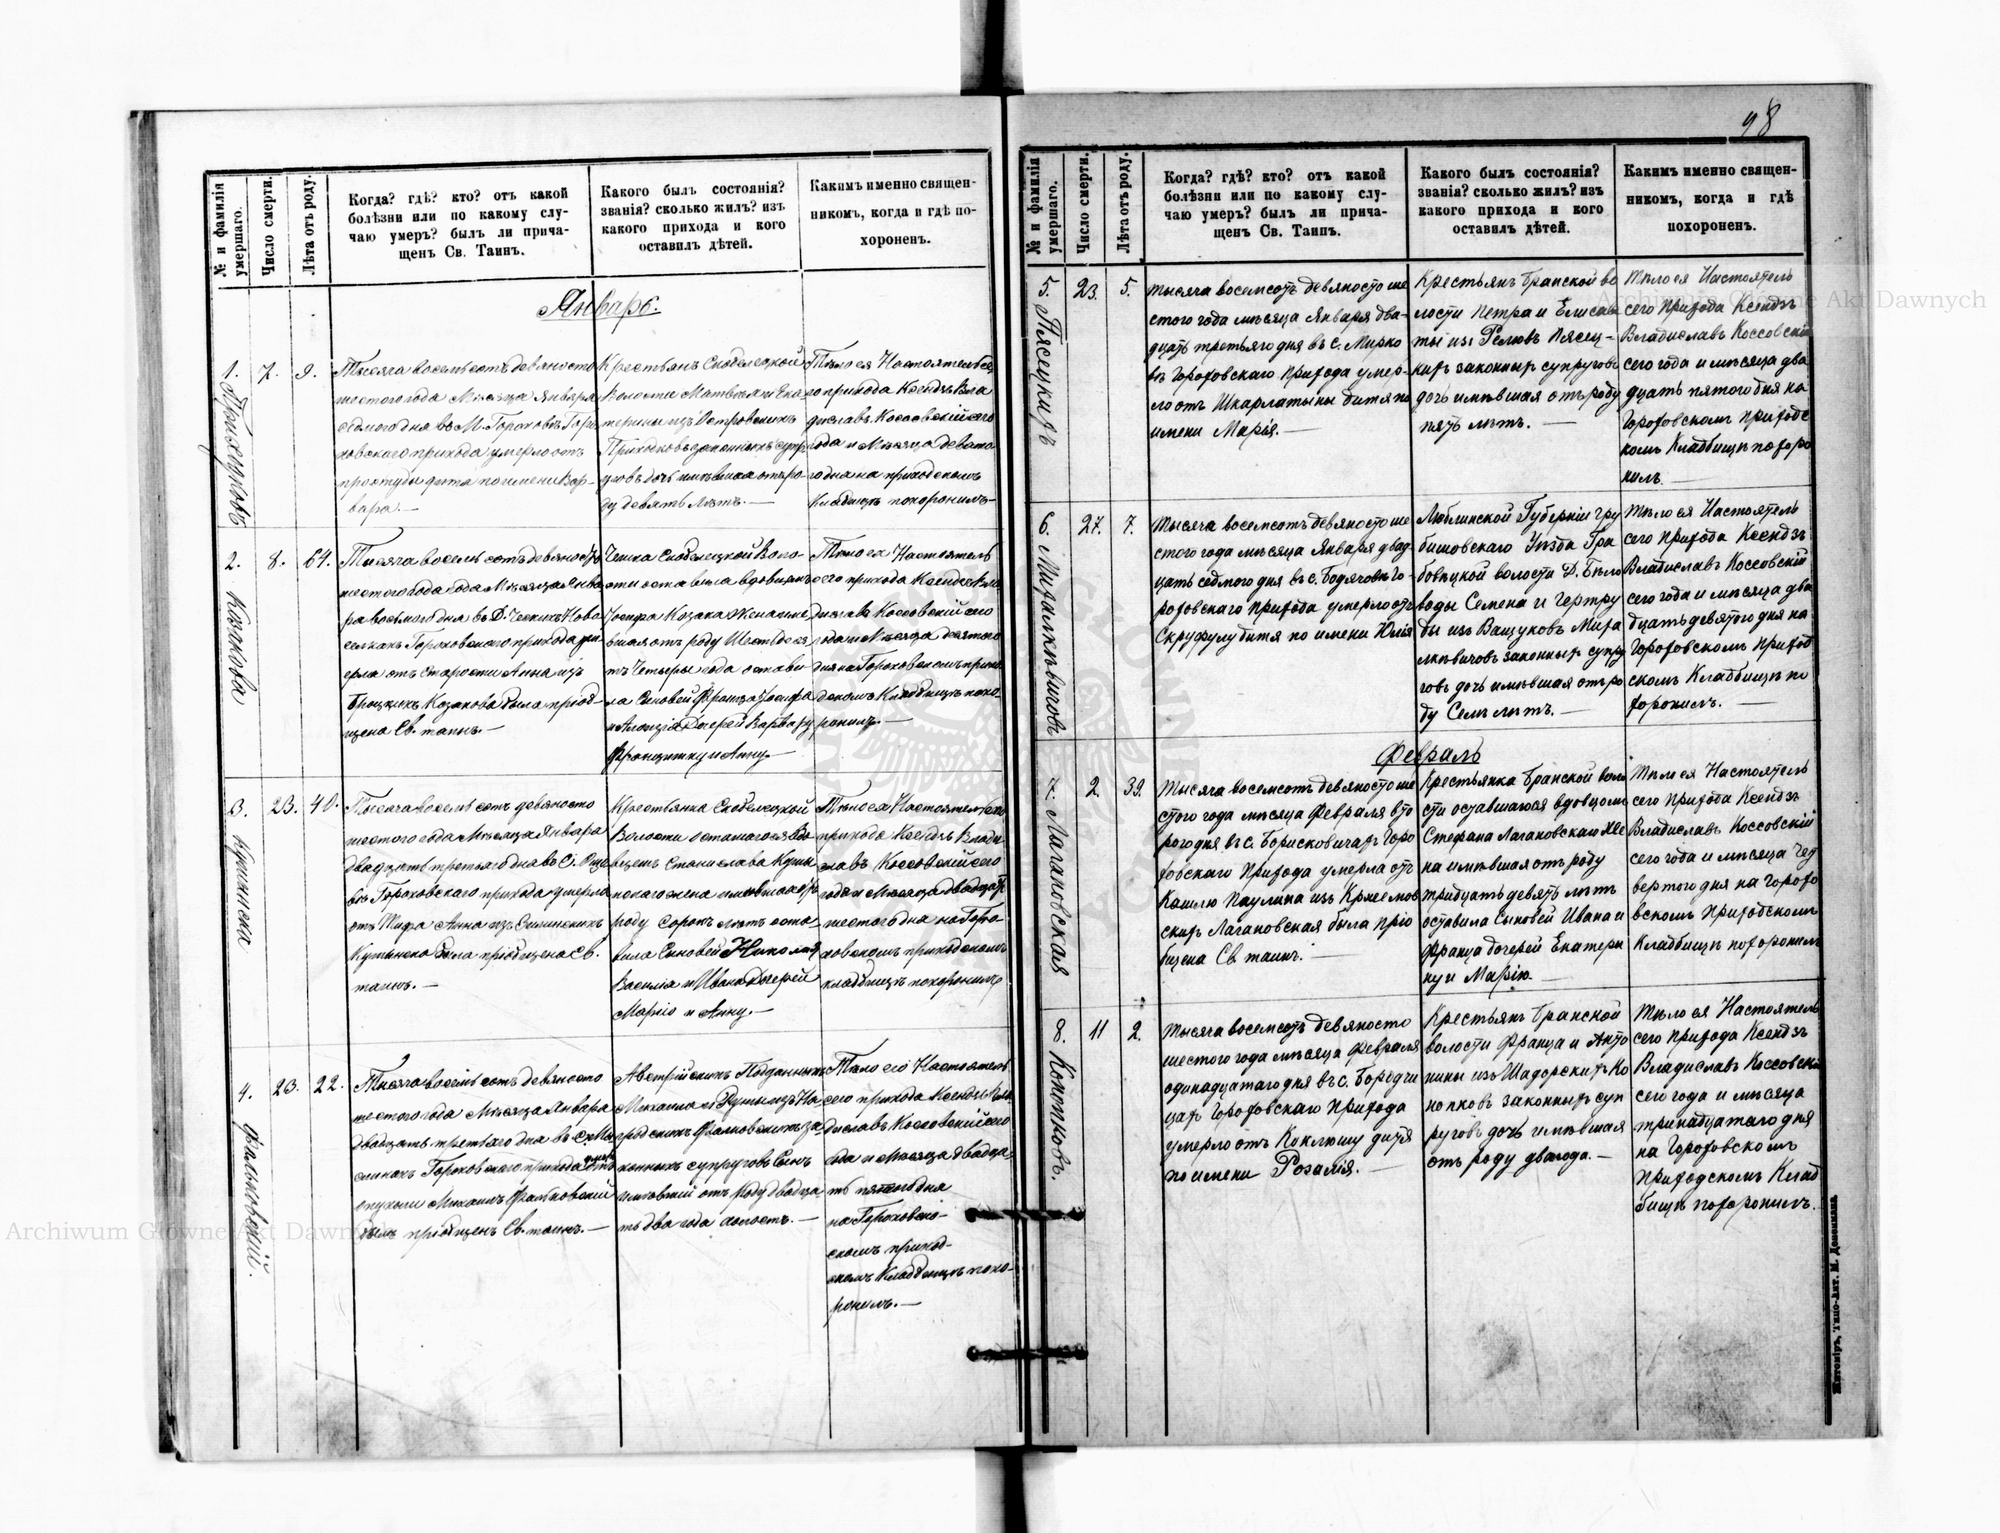 98
№ и фамилія умершаго.
Число смерти.
Лѣта отъ роду.
Когда? гдѣ? кто? отъ какой
болѣзни или по какому слу-
чаю умеръ? былъ ли прича-
щенъ Св. Таинъ.
Какого былъ состоянія?
званія? сколько жилъ? изъ
какого прихода и кого
оставилъ дѣтей.
Какимъ именно священ-
никомъ, когда и гдѣ по-
хороненъ.
Январь.
1.
7.
9.
Тысяча восемьсотъ девяносто
шестого года Мѣсяца Января
седмого дня въ М. Гороховѣ Горо
ховскаго прихода умерло отъ
простуды дитя по имени Вар-
вара.—
Крестьянъ Скобелецкой
Волости Матвѣя и Ека-
терины изъ Островскихъ
законныхъ супру
говъ дочь имѣвшая отъ ро-
ду девять лѣтъ.—
Тѣло ея Настоятель се
го прихода Ксендзъ Вла
диславъ Коссовскій сего
года и Мѣсяца девята
го дня на приходскомъ
Кладбищѣ похоронилъ—
2.
Козакова
8.
64.
Тысяча восемь сотъ девяносто
шестого года Мѣсяца Янва
ря восьмого дня въ Д. Чешскихъ Ново
селкахъ Гороховскаго прихода ум
ерла отъ старости Анна изъ
Козакова была пріоб-
щена Св. таинъ.—
Чешка Скобелецкой Воло-
сти
Іосифа Козака Жена имѣ
вшая отъ роду Шестьдеся
тъ Четыре года остави
ла Сыновей Франца Іосифа
и Алоизія Дочерей Варвару
Францишку и Анну.
Тѣло ея Настоятель
сего прихода Ксендзъ Вла
диславъ Коссовскій сего
года и Мѣсяца десятого
дня на Гороховскомъ прихо
дскомъ Кладбищѣ похо-
ронилъ.—
3.
Кушинская
23.
40.
Тысяча восемь сотъ девяносто
шестого года Мѣсяца Января
двадцать третьяго дня въ С.
Гороховскаго прихода умерла
отъ Тифа Анна изъ
была пріобщена Св.
таинъ.—
Крестьянка Скобелецкой
Волости оставшагося Вдо
вцемъ Станислава
жена имѣвшая отъ
роду Сорокъ лѣтъ оста
вила Сыновей Николая
Василія и Ивана Дочерей
Марію и Анну.—
Тѣло ея Настоятель сего
прихода Ксендзъ Влади
славъ Коссовскій сего
года и Мѣсяца двадцать
шестого дня на Горо-
ховскомъ приходскомъ
кладбищѣ похоронилъ
4.
Фальковскій.
23.
22.
Тысяча восемь сотъ девяносто
шестого года Мѣсяца Января
двадцать третьяго дня въ с.
Гороховскаго прихода умеръ отъ
опухоли Михаилъ Фальковскій
былъ пріобщенъ Св. таинъ.—
Австрійскихъ Подданныхъ
Михаила и
Фальковскихъ за
конныхъ супруговъ Сынъ
имѣвшій отъ роду двадца
ть два года холостъ.—
Тѣло его Настоятель
сего прихода Ксендзъ Вла
диславъ Коссовскій сего
года и Мѣсяца двадца
ть пятого дня
на Гороховско-
скомъ приход-
скомъ Кладбищѣ похо-
ронилъ.—
№ и фамилія умершаго.
Число смерти.
Лѣта отъ роду.
Когда? гдѣ? кто? отъ какой
болѣзни или по какому слу-
чаю умеръ? былъ ли прича-
щенъ Св. Таинъ.
Какого былъ состоянія?
званія? сколько жилъ? изъ
какого прихода и кого
оставилъ дѣтей.
Какимъ именно священ-
никомъ, когда и гдѣ
похороненъ.
5.
Пясецкихъ
23.
5.
Тысяча восемсотъ девяносто ше
стого года мѣсяца Января два-
дцать третьяго дня въ с. Мирко
вѣ Гороховскаго Прихода умер-
ло отъ Шкарлатыны дитя по
имени Марія.—
Крестьянъ Бранской во
лости Петра и Елисаве
ты изъ Пясец-
кихъ законныхъ супруговъ
дочь имѣвшая отъ роду
пять лѣтъ.—
Тѣло ея Настоятель
сего Прихода Ксендзъ
Владиславъ Коссовскій
сего года и мѣсяца два
дцать пятого дня на
Гороховскомъ Приходс
комъ Кладбищѣ похоро
нилъ.—
6.
Михалкѣвичовъ
27.
7.
Тысяча восемсотъ девяносто ше
стого года мѣсяца Января двад
цать седмого дня въ с. Бодячовѣ Го-
роховскаго Прихода умерло отъ
Скруфулу дитя по имени Юлія
Люблинской Губерніи Гру
бишовскаго Уѣзда Гра
бовецкой волости Д. Бѣло
воды Семена и Гертру
ды изъ Ващуковъ Миха
лкѣвичовъ законныхъ супру
говъ дочь имѣвшая отъ ро
ду Семь лѣтъ.—
Тѣло ея Настоятель
сего Прихода Ксендзъ
Владиславъ Коссовскій
сего года и мѣсяца два
дцать девятого дня на
Гороховскомъ Приход
скомъ Кладбищѣ по
хоронилъ.—
Февраль
7.
Лагановская
2.
39.
Тысяча восемсотъ девяносто ше
стого года мѣсяца Февраля вто
рого дня въ с. Борисковичахъ Горо
ховскаго Прихода умерла отъ
Кашлю Паулина изъ Кржемов
скихъ Лагановская была прію
бщена Св. таинъ.—
Крестьянка Бранской воло
сти оставшагося вдовцомъ
Стефана Лагановскаго Же
на имѣвшая отъ роду
тридцать девять лѣтъ
оставила Сыновей Ивана и
Франца дочерей Екатери
ну и Марію.
Тѣло ея Настоятель
сего Прихода Ксендзъ
Владиславъ Коссовскій
сего года и мѣсяца Чет
вертого дня на Горохо
вскомъ Приходскомъ
Кладбищѣ похоронилъ
8.
Конопковъ.
11
2.
Тысяча восемсотъ девяносто
шестого года мѣсяца Февраля
одинадцатаго дня въ с. Бородчи
цахъ Гороховскаго Прихода
умерло отъ Коклюшу дитя
по имени Розалія.—
Крестьянъ Бранской
волости Франца и Анто
нины изъ Шадорскихъ Ко
нопковъ законныхъ суп
руговъ дочь имѣвшая
отъ роду два года.—
Тѣло ея Настоятель
сего Прихода Ксендзъ
Владиславъ Коссовскій
сего года и мѣсяца
тринадцатаго дня
на Гороховскомъ
Приходскомъ Клад
бищѣ похоронилъ.
Житоміръ, Типо-Лит. М. Дененмана
Archiwum Główne Akt Dawnych
Archiwum Główne Akt Dawnych